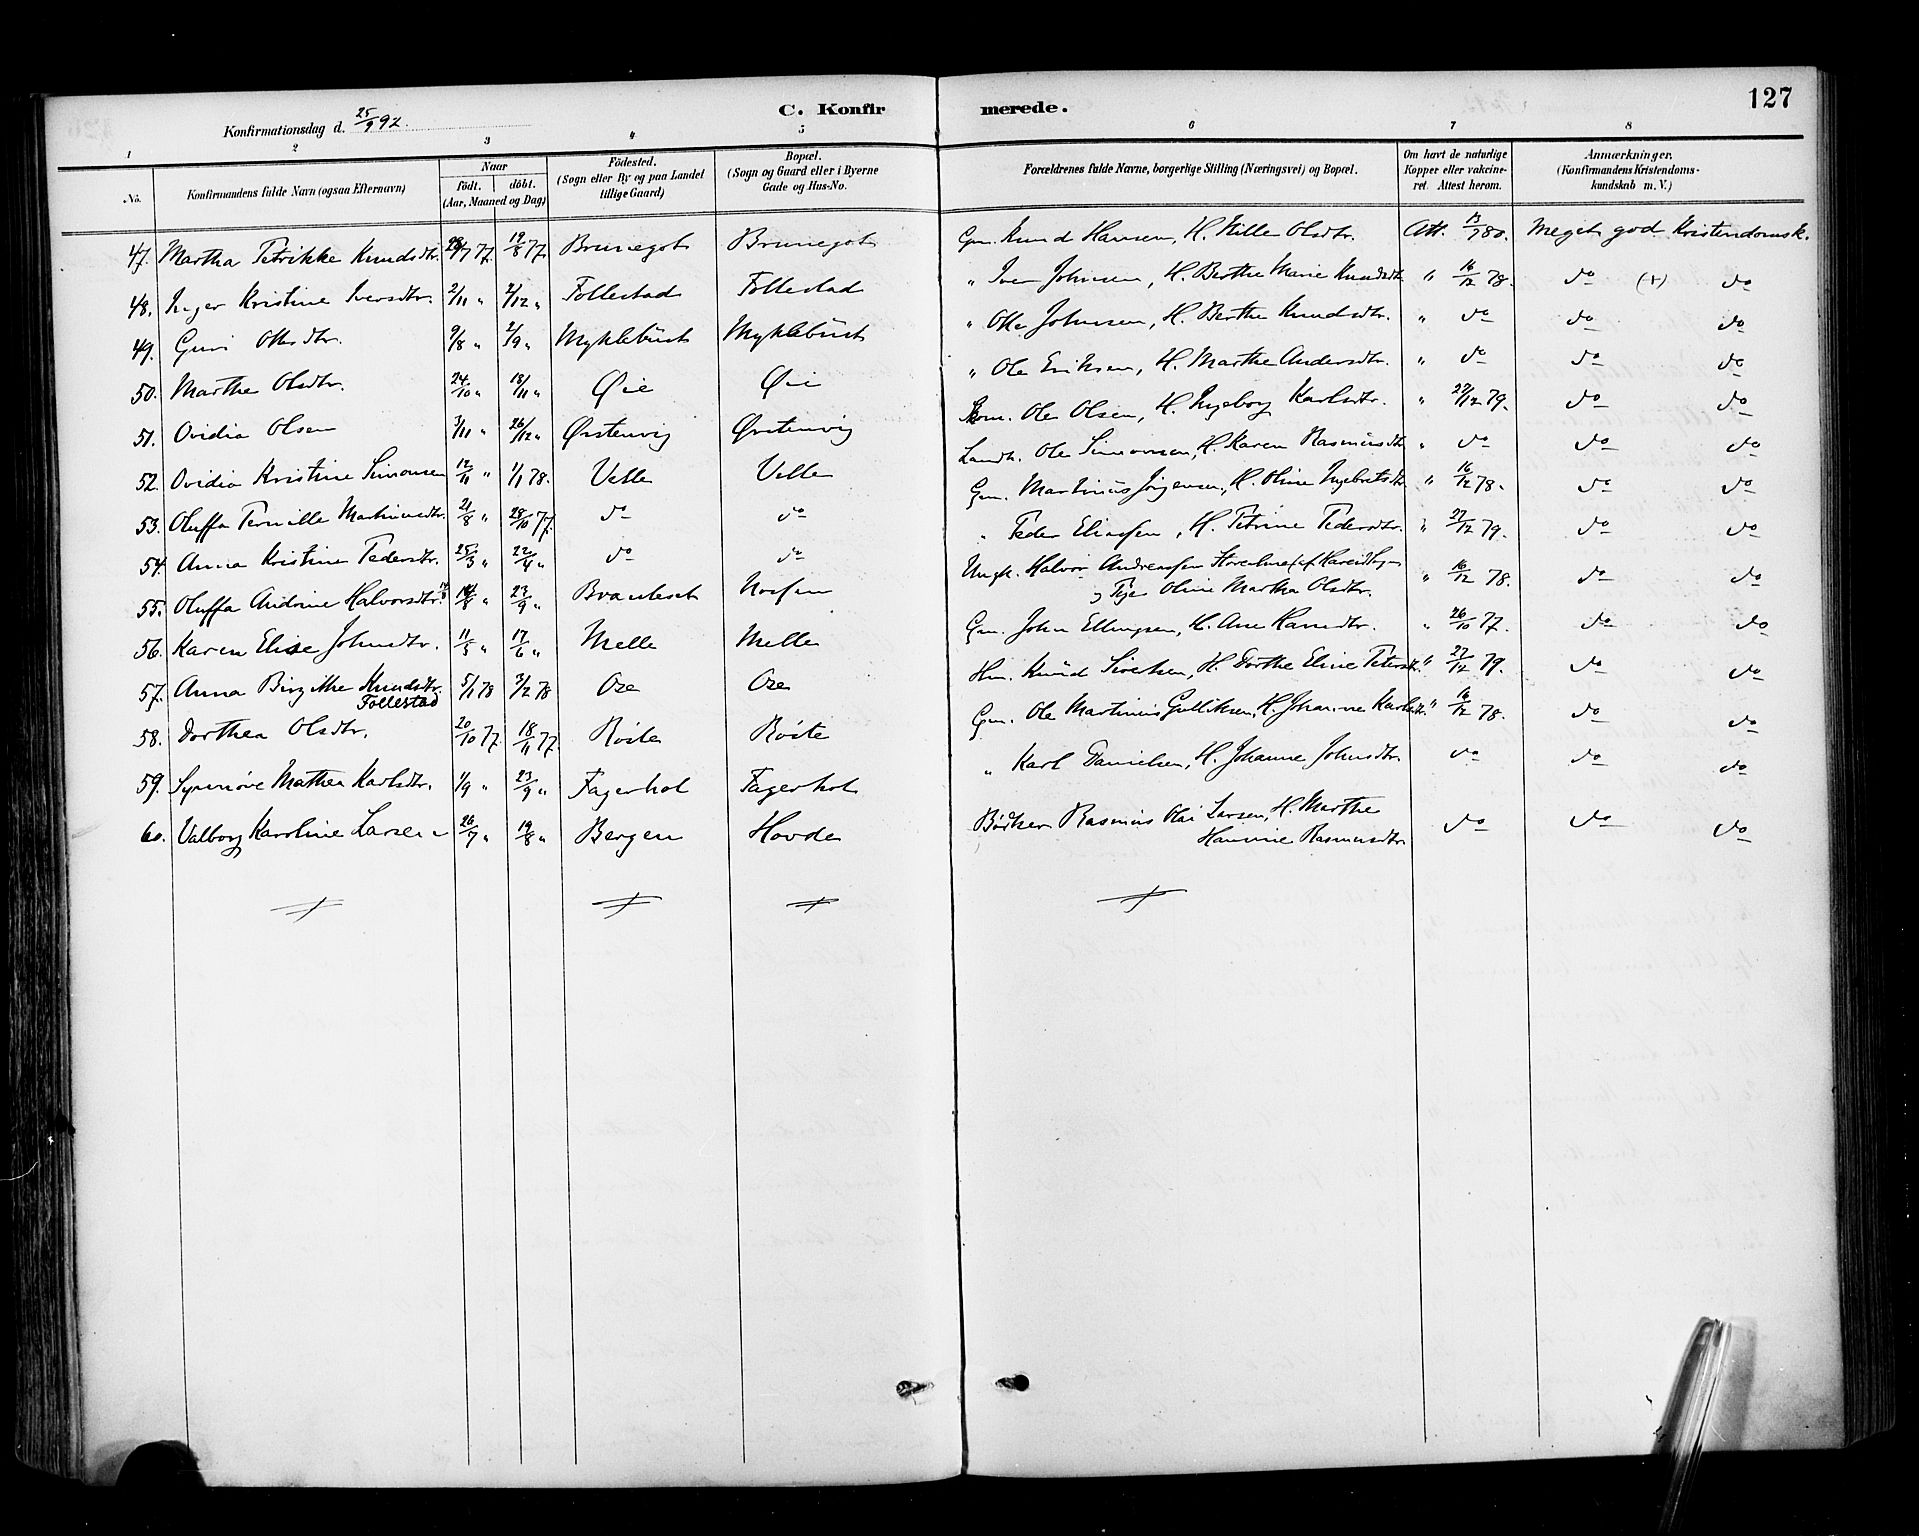 127
Konfirmationsdag d. 25/9 92.
C. Konfirmerede.
1 2 3 4 5 6 7 8
No.
Konfirmandens fulde Navn (ogsaa Efternavn)
Naar
födt. döbt.
(Aar, Maaned og Dag)
Födested.
(Sogn eller By og paa Landet
tillige Gaard)
Bopæl.
(Sogn og Gaard eller i Byerne
Gade og Hus-No.
Forældrenes fulde Navne, borgerlige Stilling (Næringsvei) og Bopæl.
Om havt de naturlige
Kopper eller vaktine-
ret. Attest herom.
Anmærkninger.
(Konfirmandens Kristendoms-
kundskab m. V.)
47. Martha Petrikke Knudsdtr. 77. 19/8 77. Brunegot Brunegot Gm. Knud Hansen, H. Olsdtr. Att. 80. Meget god Kristendomsk.
48. Inger Kristine Iversdtr. 2/11 „ 2/12 „ Follestad Follestad „ Iver Johnsen, H. Berthe Marie Knudsdtr. „ 16/12 78. do (+) do
49. Guri Ottesdtr. 9/8 „ 2/9 „ Myklebust Myklebust „ Otte Johnsen, H. Berthe Knudsdtr. „ do do do
50. Marthe Olsdtr. 24/10 „ 18/11 „ Øie Øie „ Ole Eriksen, H. Marthe Andersdtr. „ do do do
51. Ovidia Olsen 3/11 „ 26/12 „ Ørstenvig Ørstenvig Ole Olsen, H. Ingeborg Karlsdtr. „ 27/12 79. do do
52. Ovidia Kristine Simonsen 12/11 „ 1/1 78. Velle Velle Landh. Ole Simonsen, H. Karen Rasmusdtr. „ do do do
53. Oluffa Pernille Martinusdtr. 21/8 „ 28/10 77. do do Gm. Martinus Jörgensen, H. Oline Ingebretsdtr. „ 16/12 78. do do
54. Anna Kristine Pedersdtr. 25/3 „ 22/4 „ do do „ Peder Eliassen, H. Petrine Pedersdtr. „ 27/12 79. do do
55. Oluffa Andrine Halvorsdtr. „ 23/9 „ Brauteset Ungk. Halvor Andreassen
Pige Oline Martha Olsdtr. „ 16/12 78. do do
56. Karen Elise Johnsdtr. 11/5 „ 17/6 „ Melle Melle Gm. John Ellingsen, H. Ane „ 26/10 77. do do
57. Anna Birgithe Knudsdtr. 5/1 78 3/2 78 Ose Ose Hm. Knud Sivertsen, H. Dorthe Eline Petersdtr. „ 27/12 79. do do
Follestad
58. Dorthea Olsdtr. 20/10 77. 18/11 77. Röite Röite Gm. Ole Martinus Gulliksen, H. Johanne Karlsdtr. „ 16/12 78. do do
59. Synnöve Mathea Karlsdtr. 1/9 „ 23/9 „ Fagerhol Fagerhol „ Karl Danielsen, H. Johanne Johnsdtr. do do do
60. Valborg Karoline Larsen 26/7 „ 19/8 „ Bergen Hovde Bödker Rasmus Olai Larsen, H. Marthe
Hansine Rasmusdtr. do do do